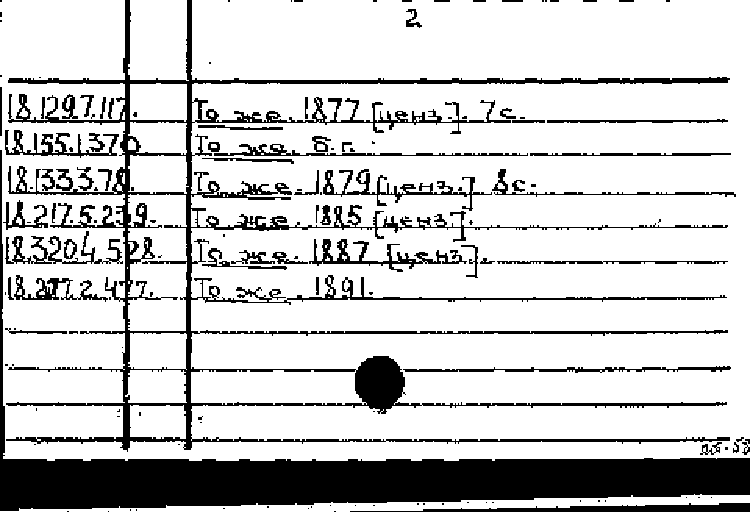 2
18.129.7.117. То же. 1877 [ценз]. 7с.
18.155.1.370 То же. б.г.
18.133.3.78. То же. 1879 [ценз.] 8с.
18.217.5.239. То же. 1885 [ценз].
18.320 4.528. То же. 1887 [ценз].
18.277.2.477. То же. 1891.